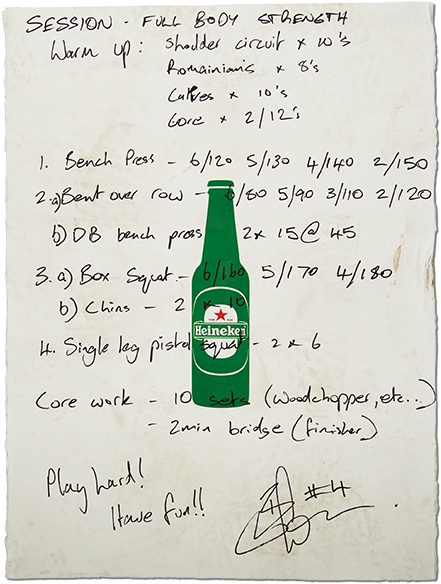 SESSION - FULL BODY STRENGTH
Warm up: Shoulder circuit x 10's
Romainian's x 8's
Calves x 10's
Core x 2/12's
1. Bench Press - 6/120 5/130 4/140 2/150
2.a) Bent over row - 6/80 5/90 3/110 2/120
b) DB bench press 2x 15@ 45
3. a) Box Squat - 6/160 5/170 4/180
b) Chins - 2 x 10
Heineken
4. Single leg pistol squat - 2 x 6
Core work - 10 sets (woodchopper, etc...)
- 2min bridge (finisher)
Play hard!
Have fun!!
#4